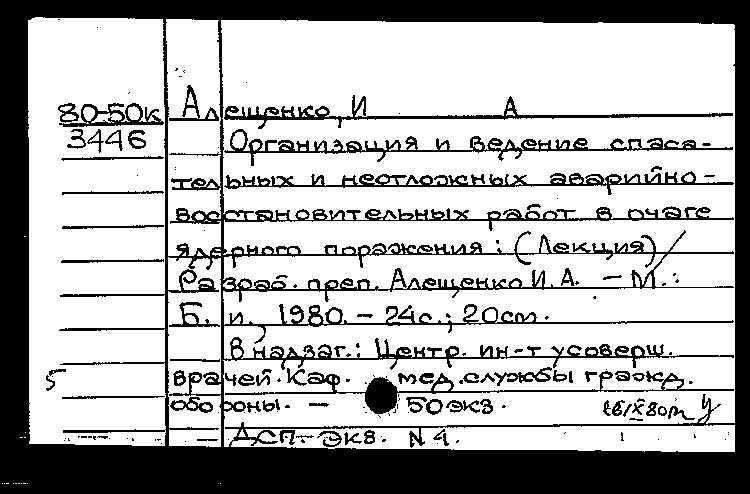 80-50к Алещенко, И А
3446 Организация и ведение спаса-
тельных и неотложных аварийно-
восстановительных работ в очаге
ядерного поражения: (Лекция) /
Разраб. преп. Алещенко И.А. – М.:
Б. и., 1980. – 24с.; 20см.
В надзаг.: Центр. ин-т усоверш.
5 врачей. Каф. мед. службы гражд.
обороны. – 50 экз.
ДСП – экз. N 4.